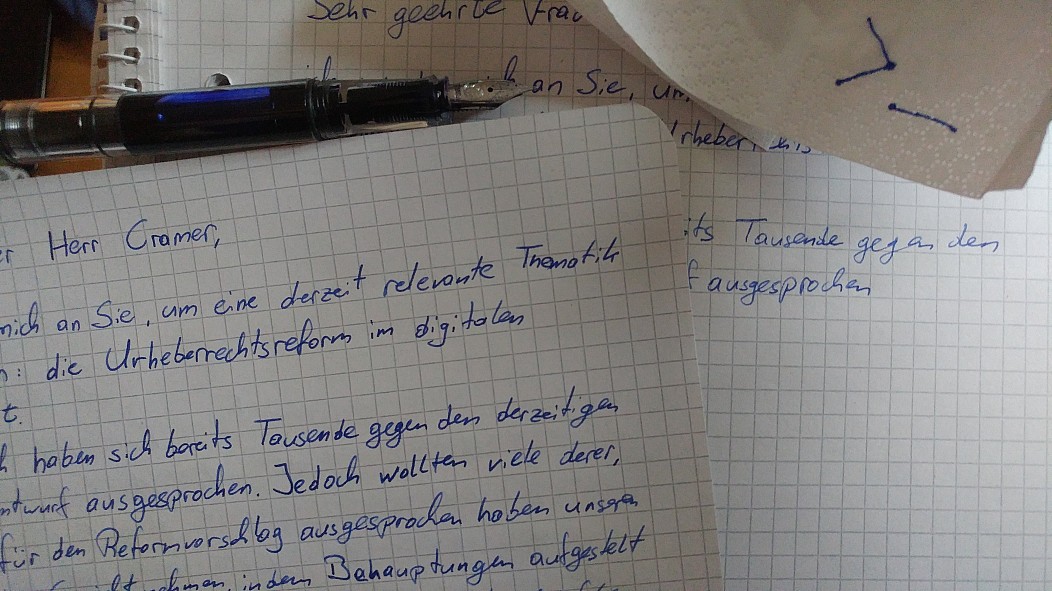 Sehr geehrte Frau
an Sie, um
its Tausende gegen den
f ausgesprochen
er Herr Cramer,
mich an Sie, um eine derzeit relevante Thematik
n: die Urheberrechtsreform im digitalen
t.
h haben sich bereits Tausende gegen den derzeitigen
ntwurf ausgesprochen. Jedoch wollten viele derer,
für den Reformvorschlag ausgesprochen haben unseren
indem Behauptungen aufgestelt